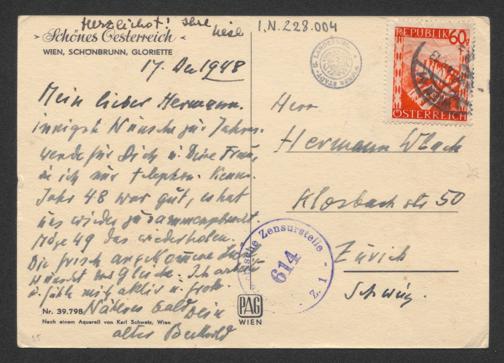 Herzlichst! Ihre
I.N.228.004
Schönes Oesterreich
WIEN, SCHÖNBRUNN, GLORIETTE
17. Dez 1948
Mein lieber Hermann.
innigste Wünsche zur Jahres
wende für Dich u. Deine Frau,
die ich nur telephon. kenne.
Jahr 48 war gut, es hat
uns wieder zusammengebracht.
Möge 49 das wiederholen.
Die frisch angekommene
wünscht mir Glück. Ich arbeite
u. fühle mich aktiv u. froh.
Näheres bald Dein
alter Berthold
Nr. 39.798
Nach einem Aquarell von Karl Schwetz, Wien
PAG
WIEN
REPUBLIK 60g
ÖSTERREICH
Herr
Hermann
Klosbach str 50
Zürich
Schweiz
Zensurstelle
614
Z. 1